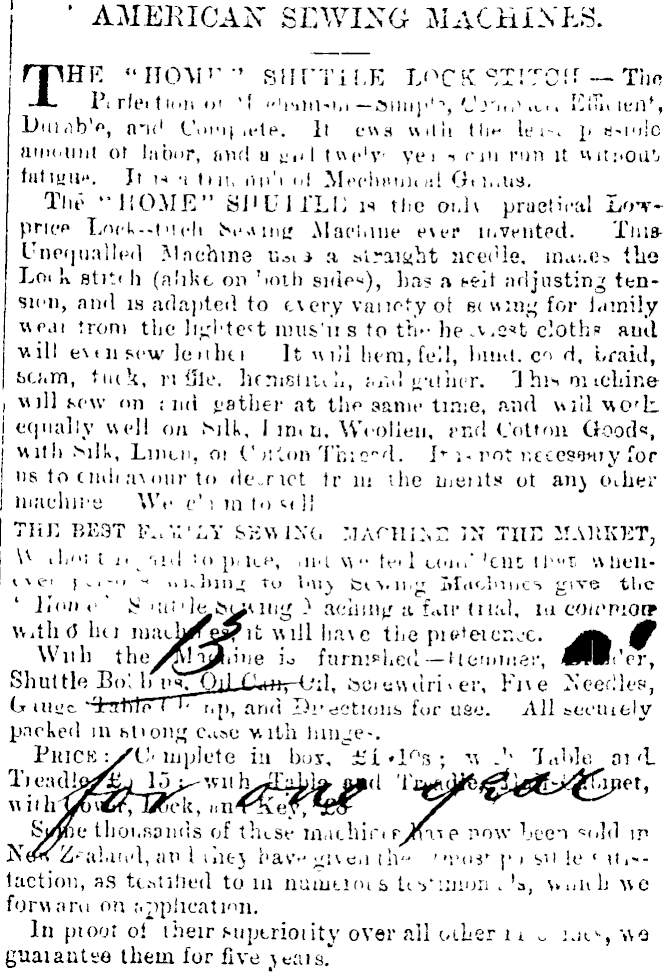 AMERICAN SEWING MACHINES.
THE "HOME" SHUTTLE LOCK STITCH — The
Perfection of Mechanism—Simple, Compact, Efficient,
Durable, and Complete. It sews with the least possible
amount of labor, and a girl twelve years can run it without
fatigue. It is a triumph of Mechanical Genius.
The "HOME" SHUTTLE is the only practical Low-
price Lock-stitch Sewing Machine ever invented. This
Unequalled Machine uses a straight needle, makes the
Lock stitch (alike on both sides), has a self adjusting ten-
sion, and is adapted to every variety of sewing for family
wear from the lightest muslins to the heaviest cloths and
will even sew leather It will hem, fell, bind, cord, braid,
seam, tuck, ruffle, hemstitch, and gather. This machine
will sew on and gather at the same time, and will work
equally well on Silk, Linen, Woollen, and Cotton Goods,
with Silk, Linen, or Cotton Thread. It is not necessary for
us to endeavour to detract from the merits of any other
machine We claim to sell
THE BEST FAMILY SEWING MACHINE IN THE MARKET,
Without regard to price, and we feel confident that when-
ever persons wishing to buy Sewing Machines give the
"Home" Shuttle Sewing Maching a fair trial, in common
with other machines, it will have the preference.
13
With the Machine is furnished—Hemmer,
Shuttle Bobbins, Oil Can, Oil, Screwdriver, Five Needles,
Gauge Table Clamp, and Directions for use. All securely
packed in strong case with hinges.
PRICE: Complete in box, with Table and
Treadle, 15; with Table and Treadle,
with Cover, Lock, and Key, £8
for one year
Some thousands of these machines have now been sold in
New Zealand, and they have given the utmost possible satis-
faction, as testified to in numerous testimonials, which we
forward on application.
In proof of their superiority over all other machines, we
guarantee them for five years.